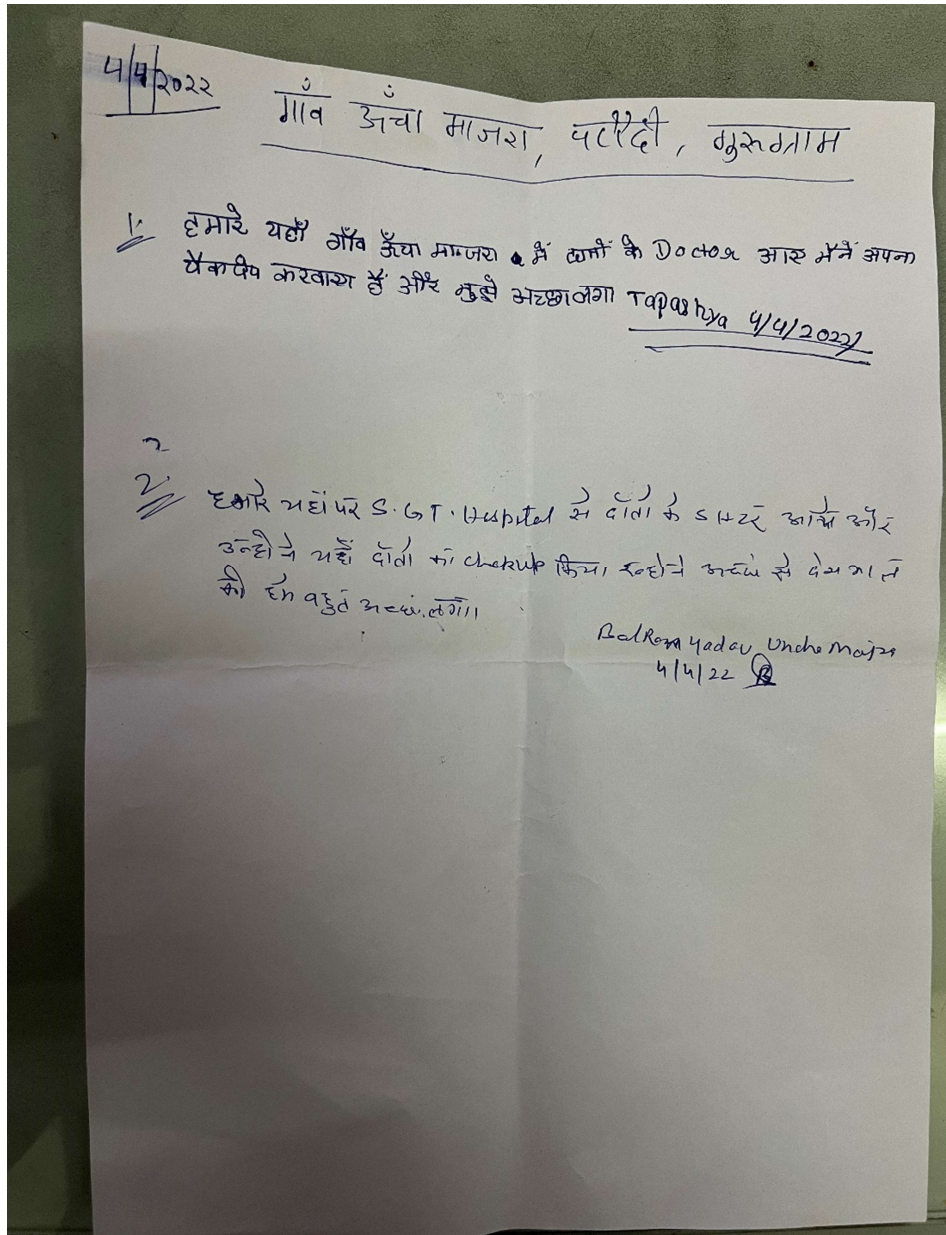 4/4/2022
गाँव ऊँचा माजरा, पटौदी, गुरुग्राम
1. हमारे यहाँ गाँव ऊँचा माजरा में दातों के Doctor आए मैनें अपना
चैकअप करवाया हैं और मुझे अच्छा लगा Tapashya 4/4/2022
2. हमारे यहाँ पर S.G.T. Hospital से दाँतो के डाक्टर आये और
उन्होने यहाँ दाँतो का checkup किया, इन्होने अच्छे से देखभाल
की हमे बहुत अच्छा लगा।
BalRam Yadav Uncha Majra
4/4/22